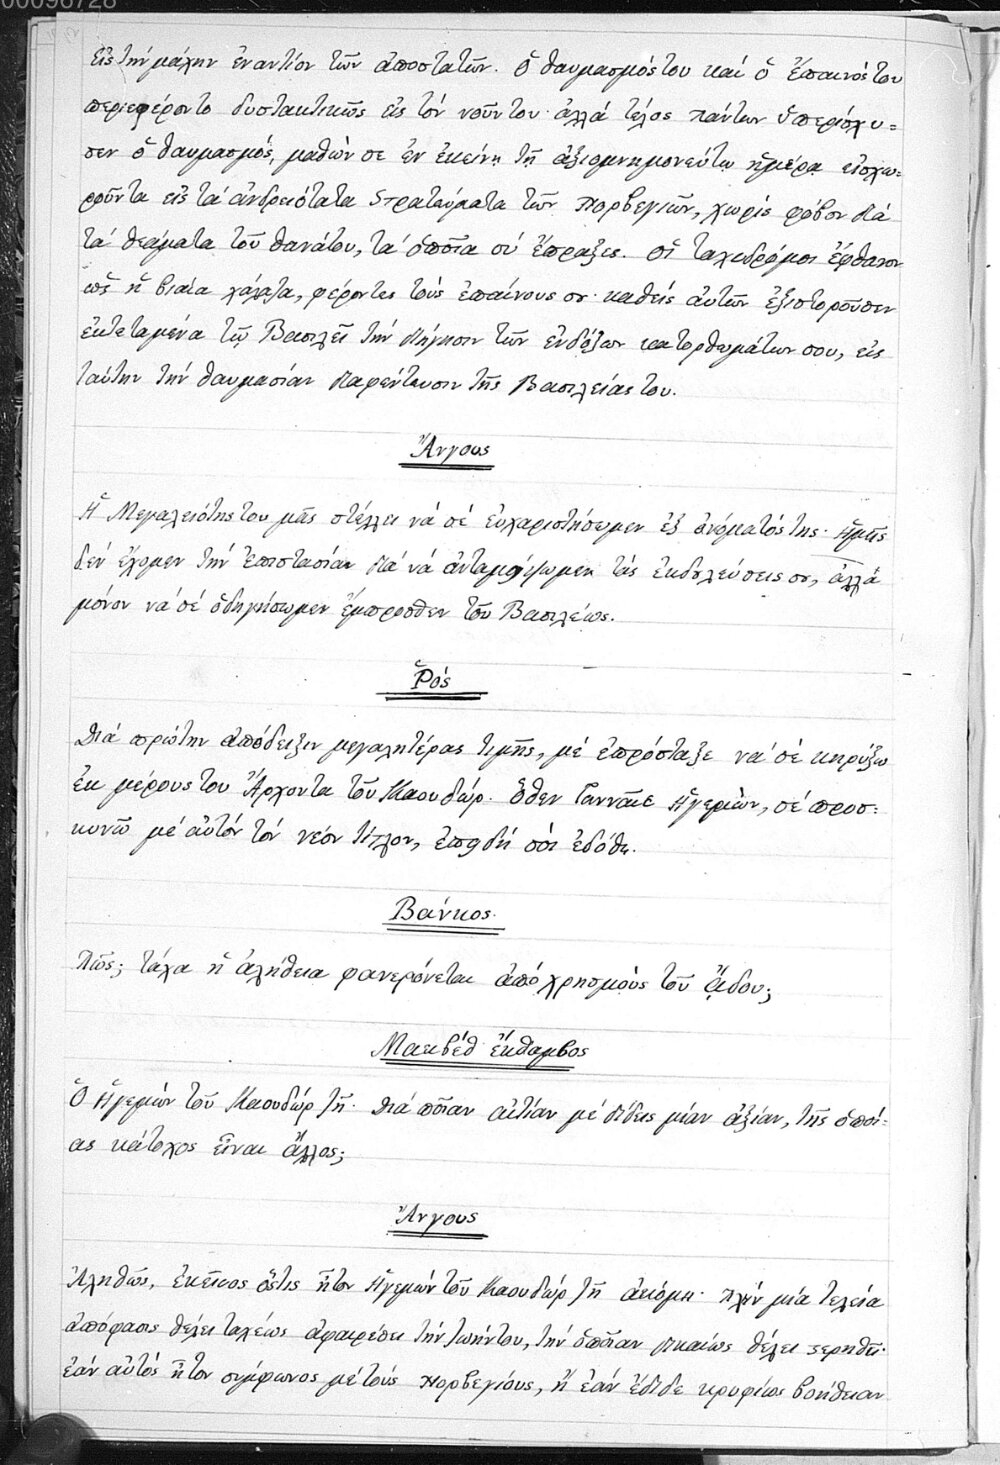 00096728
εἰς τὴν μάχην ἐναντίον τῶν ἀποστατῶν. ὁ θαυμασμός του καὶ ὁ ἔπαινός του
περιεφέροντο δυστακτικῶς εἰς τὸν νοῦν του· ἀλλὰ τέλος πάντων ὑπερίσχυ=
σεν ὁ θαυμασμός, μαθὼν σε ἐν ἐκείνῃ τῇ ἀξιομνημονεύτῳ ἡμέρᾳ εἰσχω=
ροῦντα εἰς τὰ ἀνδρειότατα στρατεύματα τῶν Νορβεγιῶν, χωρὶς φόβον διὰ
τὰ θεάματα τοῦ θανάτου, τὰ ὁποῖα σὺ ἔπραξες. οἱ ταχυδρόμοι ἔφθανον
ὡς ἡ βιαία χάλαζα, φέροντες τοὺς ἐπαίνους σου· καθεὶς αὐτῶν ἐξιστοροῦσεν
ἐκτεταμένα τῷ Βασιλεῖ τὴν διήγησιν τῶν ἐνδόξων κατορθωμάτων σου, εἰς
ταύτην τὴν θαυμασίαν διαφέντευσιν τῆς Βασιλείας του.
Ἄνγους
Ἡ Μεγαλειότης του μᾶς στέλλει νὰ σὲ εὐχαριστήσωμεν ἐξ ὀνόματός της. Ἡμεῖς
δὲν ἔχομεν τὴν ἐπιστασίαν διὰ νὰ ἀνταμείψωμεν τὰς ἐκδουλεύσεις σου, ἀλλὰ
μόνον νὰ σὲ ὁδηγήσωμεν ἔμπροσθεν τοῦ Βασιλέως.
Ῥός
Διὰ πρώτην ἀπόδειξιν μεγαλητέρας τιμῆς, μὲ ἐπρόσταξε νὰ σὲ κηρύξω
ἐκ μέρους του Ἄρχοντα τοῦ Καουδώρ. ὅθεν Γενναῖε Ἡγεμών, σὲ προσ=
κυνῶ μὲ αὐτὸν τὸν νέον τίτλον, ἐπειδὴ σοὶ ἐδόθη.
Βάνκος.
Πῶς; τάχα ἡ ἀλήθεια φανερόνεται ἀπὸ χρησμοὺς τοῦ ᾅδου;
Μακβὲθ ἔκθαμβος
Ὁ Ἡγεμὼν τοῦ Καουδὼρ ζῇ. Διὰ ποίαν αἰτίαν μὲ δίδεις μίαν ἀξίαν, τῆς ὁποί=
ας κάτοχος εἶναι ἄλλος;
Ἄνγους
Ἀληθῶς, ἐκεῖνος ὅστις ἦτον Ἡγεμὼν τοῦ Καουδὼρ ζῇ ἀκόμη· πλὴν μία τελεία
ἀπόφασις θέλει ταχέως ἀφαιρέσει τὴν ζωήν του, τὴν ὁποίαν δικαίως θέλει ξερηθῆ·
ἐὰν αὐτὸς ἦτον σύμφωνος μὲ τοὺς Νορβεγίους, ἢ ἐὰν ἔδιδε κρυφίως βοήθειαν